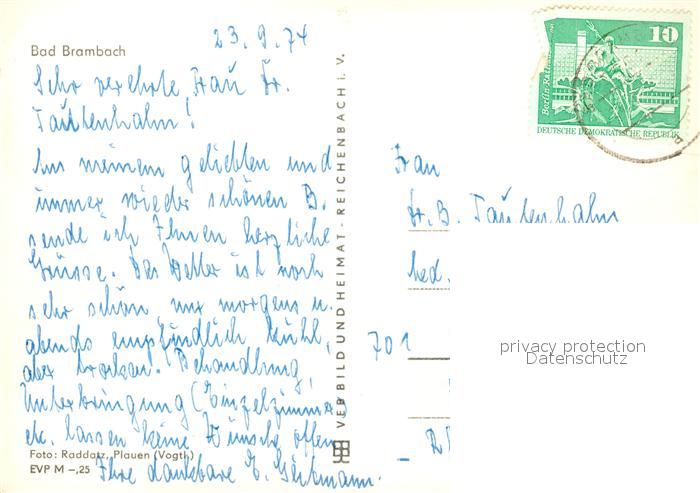 23.9.74
Bad Brambach
Sehr verehrte Frau Dr.
Tautenhahn!
Aus meinem geliebten und
immer wieder schönen B.
sende ich Ihnen herzliche
Grüsse. Das Wetter ist noch
sehr schön, nur morgens u.
abends empfindlich kühl,
aber trocken. Behandlung,
Unterbringung (Einzelzimmer
etc. lassen keine Wünsche offen
Foto: Raddatz, Plauen (Vogtl.)
EVP M -,25
Ihre dankbare E.
VEB BILD UND HEIMAT · REICHENBACH I. V.
10
Berlin-
DEUTSCHE DEMOKRATISCHE REPUBLIK
Frau
Dr. B. Tautenhahn
med.
701
privacy protection
Datenschutz